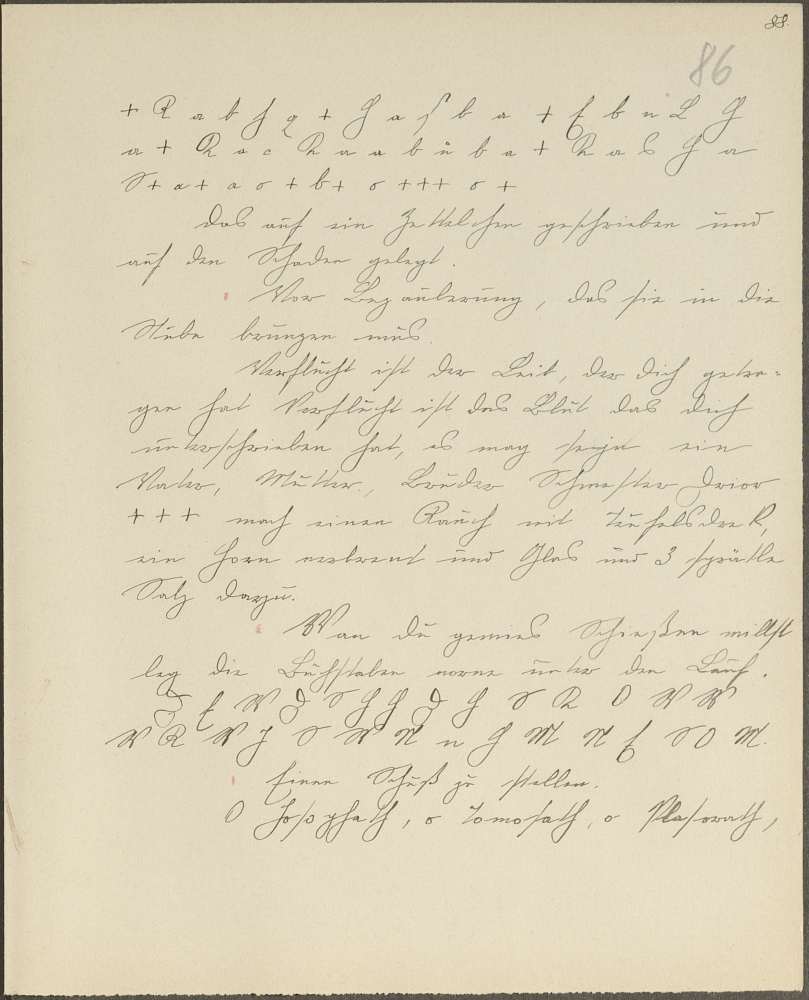 88.
86
+ R a b h g + H a ſ b a + E b n L G
a + R a c R a a b u b a + R a s H a
S + a + a o + b + o + + + o +
das auf ein Zettelchen geschrieben und
auf den Schaden gelegt.
Vor Bezauberung, das sie in die
Stube brungen mus.
Verflucht ist der Leib, der dich getra-
gen hat Verflucht ist das Blut das dich
unterschrieben hat, es mag seyn ein
Vater, Mutter, Bruder Schwester
+ + + mach einen Rauch mit Teufelsdreck,
ein Horn verbrent und Glas und 3
Salz darzu.
Wan du gewies Schießen willst
leg die Buchstaben vorne unter den Lauf.
Einen Schuß zu stellen.
O Josaphath, o Tomosath, o Plasorath,